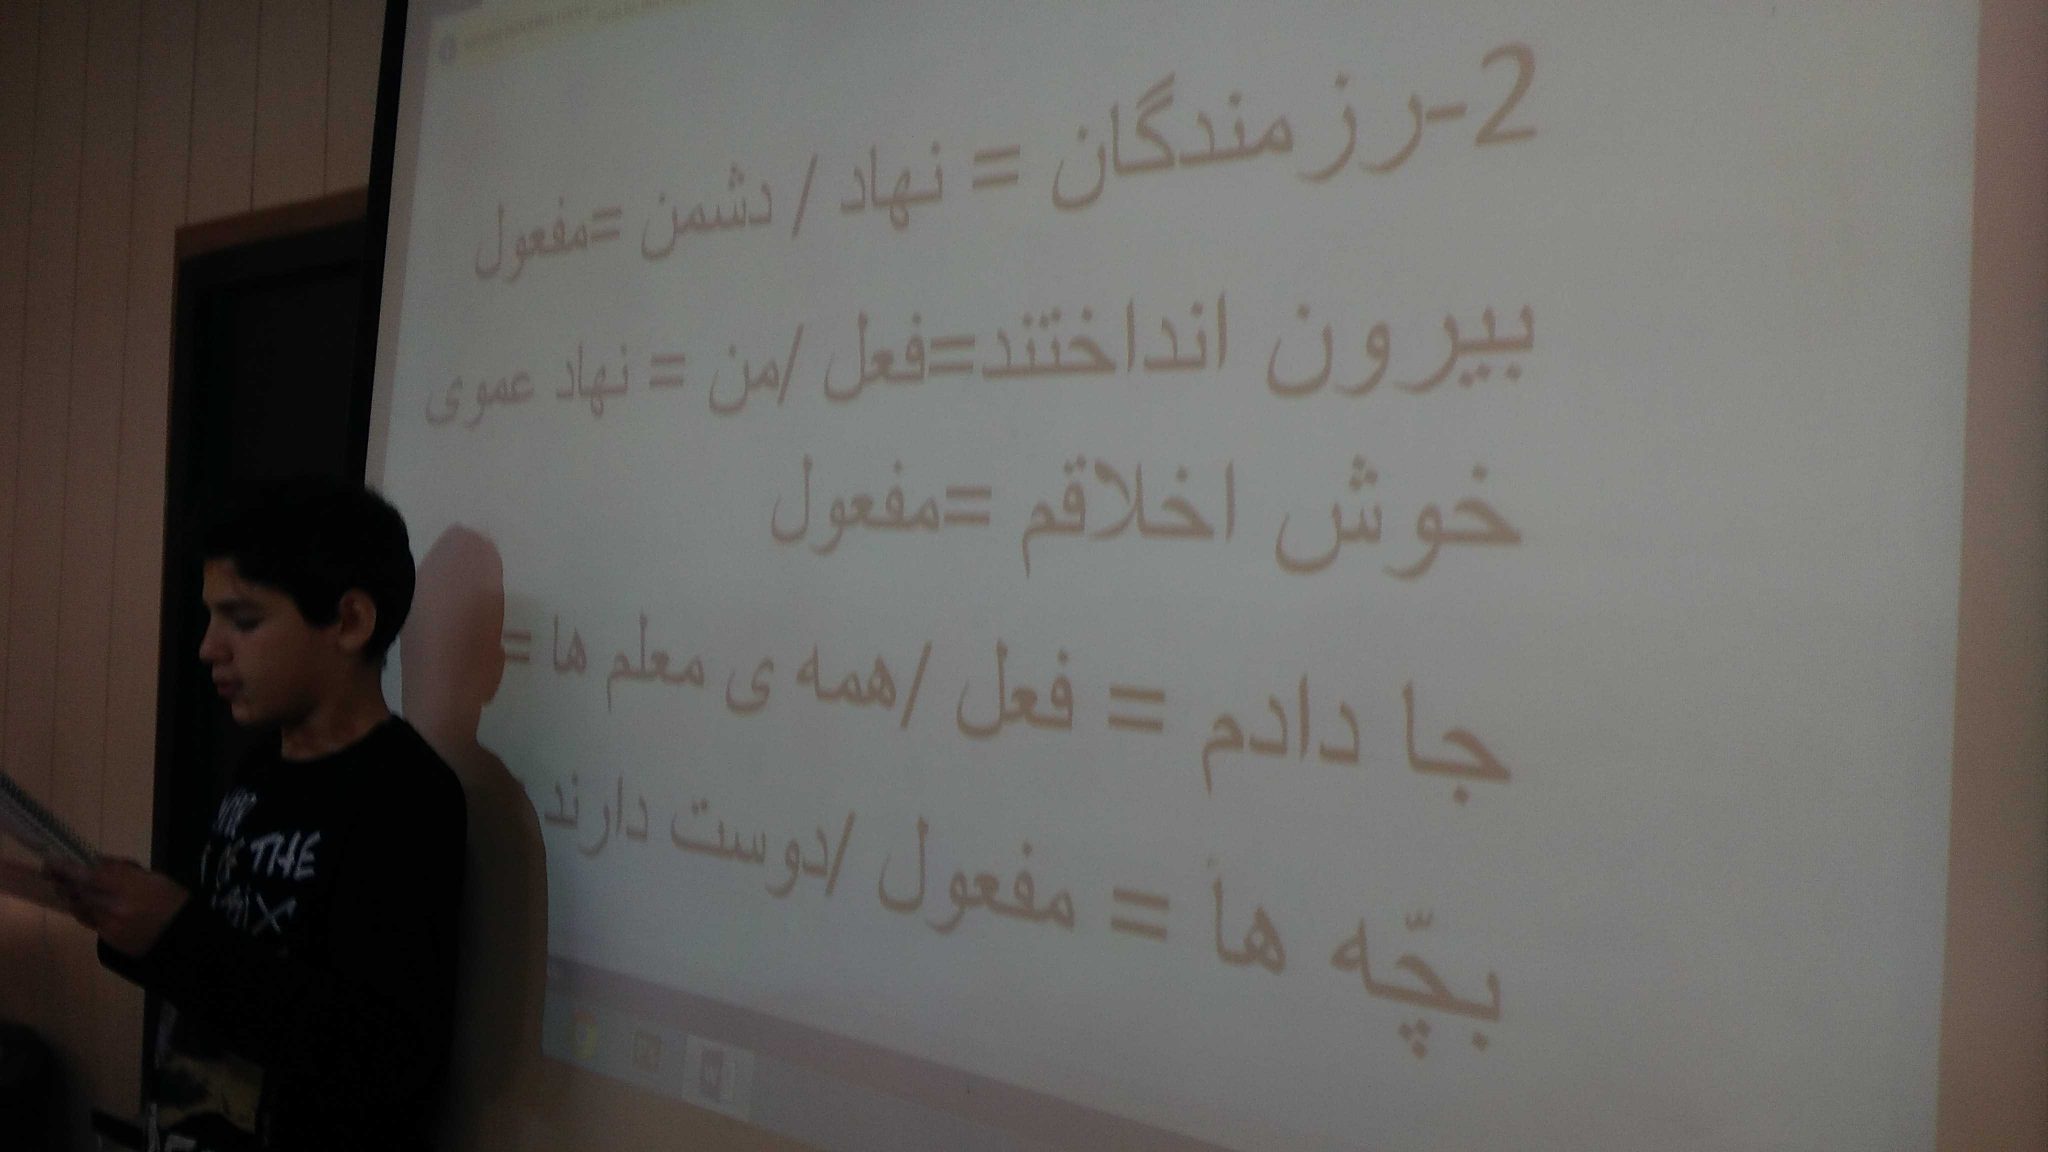 2-رزمندگان = نهاد / دشمن =مفعول
بیرون انداختند=فعل /من = نهاد عموی
خوش اخلاقم =مفعول
جا دادم = فعل /همه ی معلم ها =
بچّه هاَ = مفعول /دوست دارند
OF THE